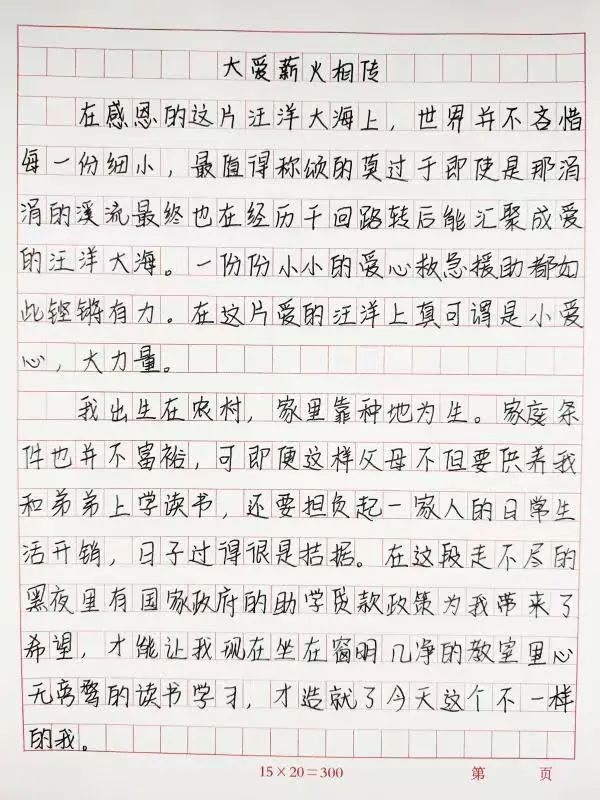 大爱薪火相传
在感恩的这片汪洋大海上，世界并不吝惜
每一份细小，最值得称颂的莫过于即使是那涓
涓的溪流最终也在经历千回路转后能汇聚成爱
的汪洋大海。一份份小小的爱心救急援助都如
此铿锵有力。在这片爱的汪洋上真可谓是小爱
心，大力量。
我出生在农村，家里靠种地为生。家庭条
件也并不富裕，可即便这样父母不但要供养我
和弟弟上学读书，还要担负起一家人的日常生
活开销，日子过得很是拮据。在这段走不尽的
黑夜里有国家政府的助学贷款政策为我带来了
希望，才能让我现在坐在窗明几净的教室里心
无旁骛的读书学习，才造就了今天这个不一样
的我。
15×20=300 第 页